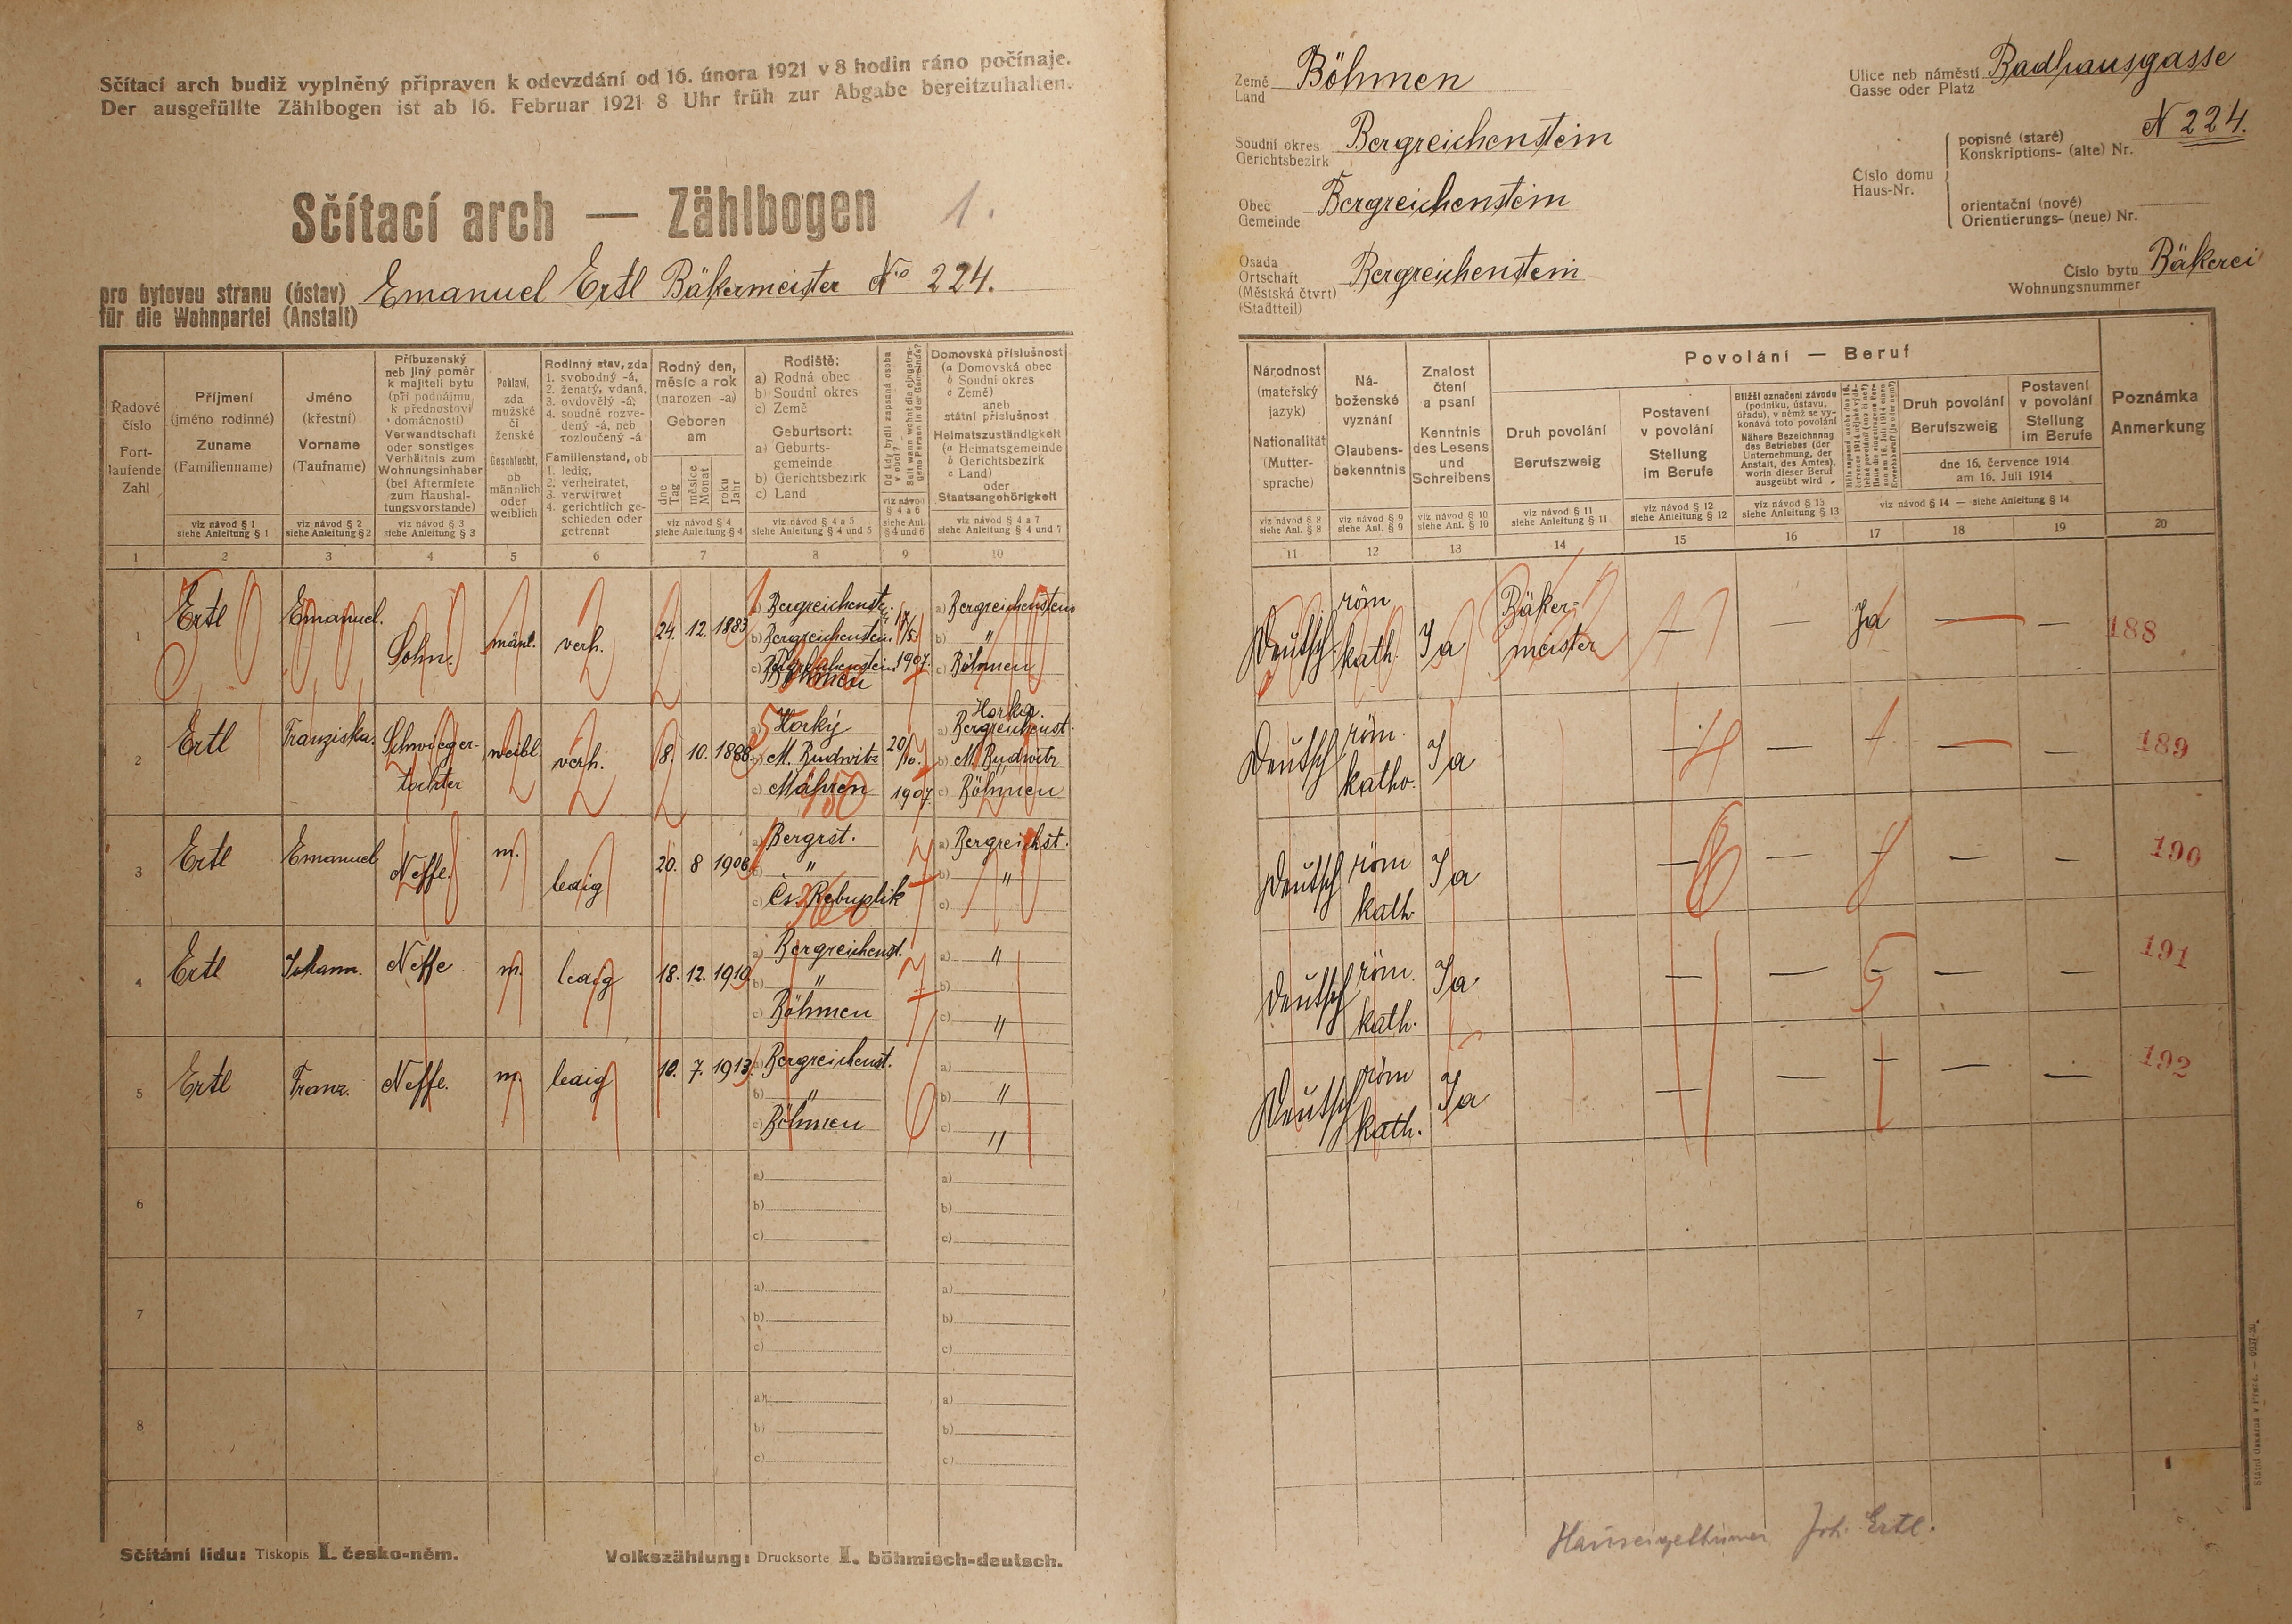 Sčítací arch budiž vyplněný připraven k odevzdání od 16. února 1921 v 8 hodin ráno počínaje.
Der ausgefüllte Zählbogen ist ab 16. Februar 1921 8 Uhr früh zur Abgabe bereitzuhalten.
Sčítací arch — Zählbogen 1.
pro bytovou stranu (ústav)
für die Wohnpartei (Anstalt)
Emanuel Ertl Bäkermeister No 224.
Řadové číslo
Fortlaufende Zahl
1
Příjmení
(jméno rodinné)
Zuname
(Familienname)
viz návod § 1
siehe Anleitung § 1
2
Jméno
(křestní)
Vorname
(Taufname)
viz návod § 2
siehe Anleitung § 2
3
Příbuzenský
neb jiný poměr
k majiteli bytu
(při podnájmu
k přednostovi
domácnosti)
Verwandtschaft
oder sonstiges
Verhältnis zum
Wohnungsinhaber
(bei Aftermiete
zum Haushal-
tungsvorstande)
viz návod § 3
siehe Anleitung § 3
4
Pohlaví,
zda
mužské
či
ženské
Geschlecht,
ob
männlich
oder
weiblich
5
Rodinný stav, zda
1. svobodný -á,
2. ženatý, vdaná,
3. ovdovělý -á;
4. soudně rozve-
dený -á, neb
rozloučený -á
Familienstand, ob
1. ledig,
2. verheiratet,
3. verwitwet
4. gerichtlich ge-
schieden oder
getrennt
6
Rodný den,
měsíc a rok
(narozen -a)
Geboren
am
dne Tag
měsíce Monat
roku Jahr
viz návod § 4
siehe Anleitung § 4
7
Rodiště:
a) Rodná obec
b) Soudní okres
c) Země
Geburtsort:
a) Geburts-
gemeinde
b) Gerichtsbezirk
c) Land
viz návod § 4 a 5
siehe Anleitung § 4 und 5
8
Od kdy bydlí zapsaná osoba v obci?
Seit wann wohnt die eingetragene Person in der Gemeinde?
viz návod
§ 4 a 6
siehe Anl.
§ 4 und 6
9
Domovská příslušnost
(a Domovská obec
b Soudní okres
c Země)
aneb
státní příslušnost
Heimatszuständigkeit
(a Heimatsgemeinde
b Gerichtsbezirk
c Land)
oder
Staatsangehörigkeit
viz návod § 4 a 7
siehe Anleitung § 4 und 7
10
1 Ertl Emanuel. Sohn. mänl. verh. 24. 12. 1883
a) Bergreichenst.
b) Bergreichenstein.
c) Bergreichenstein
Böhmen
17/5. 1907.
a) Bergreichenstein
b) "
c) Böhmen
2 Ertl Franziska. Schwieger-
tochter weibl. verh. 8. 10. 1888.
a) Horky
b) M. Budwitz
c) Mähren
20/10. 1907.
Horka.
a) Bergreichenst.
b) M. Budwitz
c) Böhmen
3 Ertl Emanuel Neffe. m. ledig 20. 8 1908
a) Bergrst.
b) "
c) Čs. Rebuplik
a) Bergreichst.
b) "
c)
4 Ertl Johann. Neffe m. ledig 18. 12. 1910
a) Bergreichenst.
b) "
c) Böhmen
a) "
b)
c) "
5 Ertl Franz. Neffe. m. ledig 10. 7. 1913
a) Bergreichenst.
b) "
c) Böhmen
a)
b) "
c) "
6
a) a)
b) b)
c) c)
7
a) a)
b) b)
c) c)
8
a) a)
b) b)
c) c)
Sčítání lidu: Tiskopis I. česko-něm.
Volkszählung: Drucksorte I. böhmisch-deutsch.
Země
Land
Böhmen
Soudní okres
Gerichtsbezirk
Bergreichenstein
Obec
Gemeinde
Bergreichenstein
Osada
Ortschaft
(Městská čtvrt)
(Stadtteil)
Bergreichenstein
Ulice neb náměstí
Gasse oder Platz
Badhausgasse
Číslo domu
Haus-Nr.
popisné (staré)
Konskriptions- (alte) Nr.
N 224.
orientační (nové)
Orientierungs- (neue) Nr.
Číslo bytu
Wohnungsnummer
Bäkerei
Národnost
(mateřský
jazyk)
Nationalität
(Mutter-
sprache)
viz návod § 8
siehe Anl. § 8
11
Ná-
boženské
vyznání
Glaubens-
bekenntnis
viz návod § 9
siehe Anl. § 9
12
Znalost
čtení
a psaní
Kenntnis
des Lesens
und
Schreibens
viz návod § 10
siehe Anl. § 10
13
Povolání — Beruf
Druh povolání
Berufszweig
viz návod § 11
siehe Anleitung § 11
14
Postavení
v povolání
Stellung
im Berufe
viz návod § 12
siehe Anleitung § 12
15
Bližší označení závodu
(podniku, ústavu,
úřadu), v němž se vy-
konává toto povolání
Nähere Bezeichnung
des Betriebes (der
Unternehmung, der
Anstalt, des Amtes),
worin dieser Beruf
ausgeübt wird
viz návod § 13
siehe Anleitung § 13
16
17
Druh povolání
Berufszweig
Postavení
v povolání
Stellung
im Berufe
dne 16. července 1914
am 16. Juli 1914
viz návod § 14 — siehe Anleitung § 14
18
19
Poznámka
Anmerkung
20
Deutsch. röm
kath. Ja Bäker-
meister — — Ja — — 188
Deutsch röm.
katho. Ja — — — — 189
Deutsch röm
kath. Ja — — — — — 190
Deutsch röm.
kath. Ja — — — — — 191
Deutsch röm
kath. Ja — — — — — 192
Hauseigelthümer Joh. Ertl.